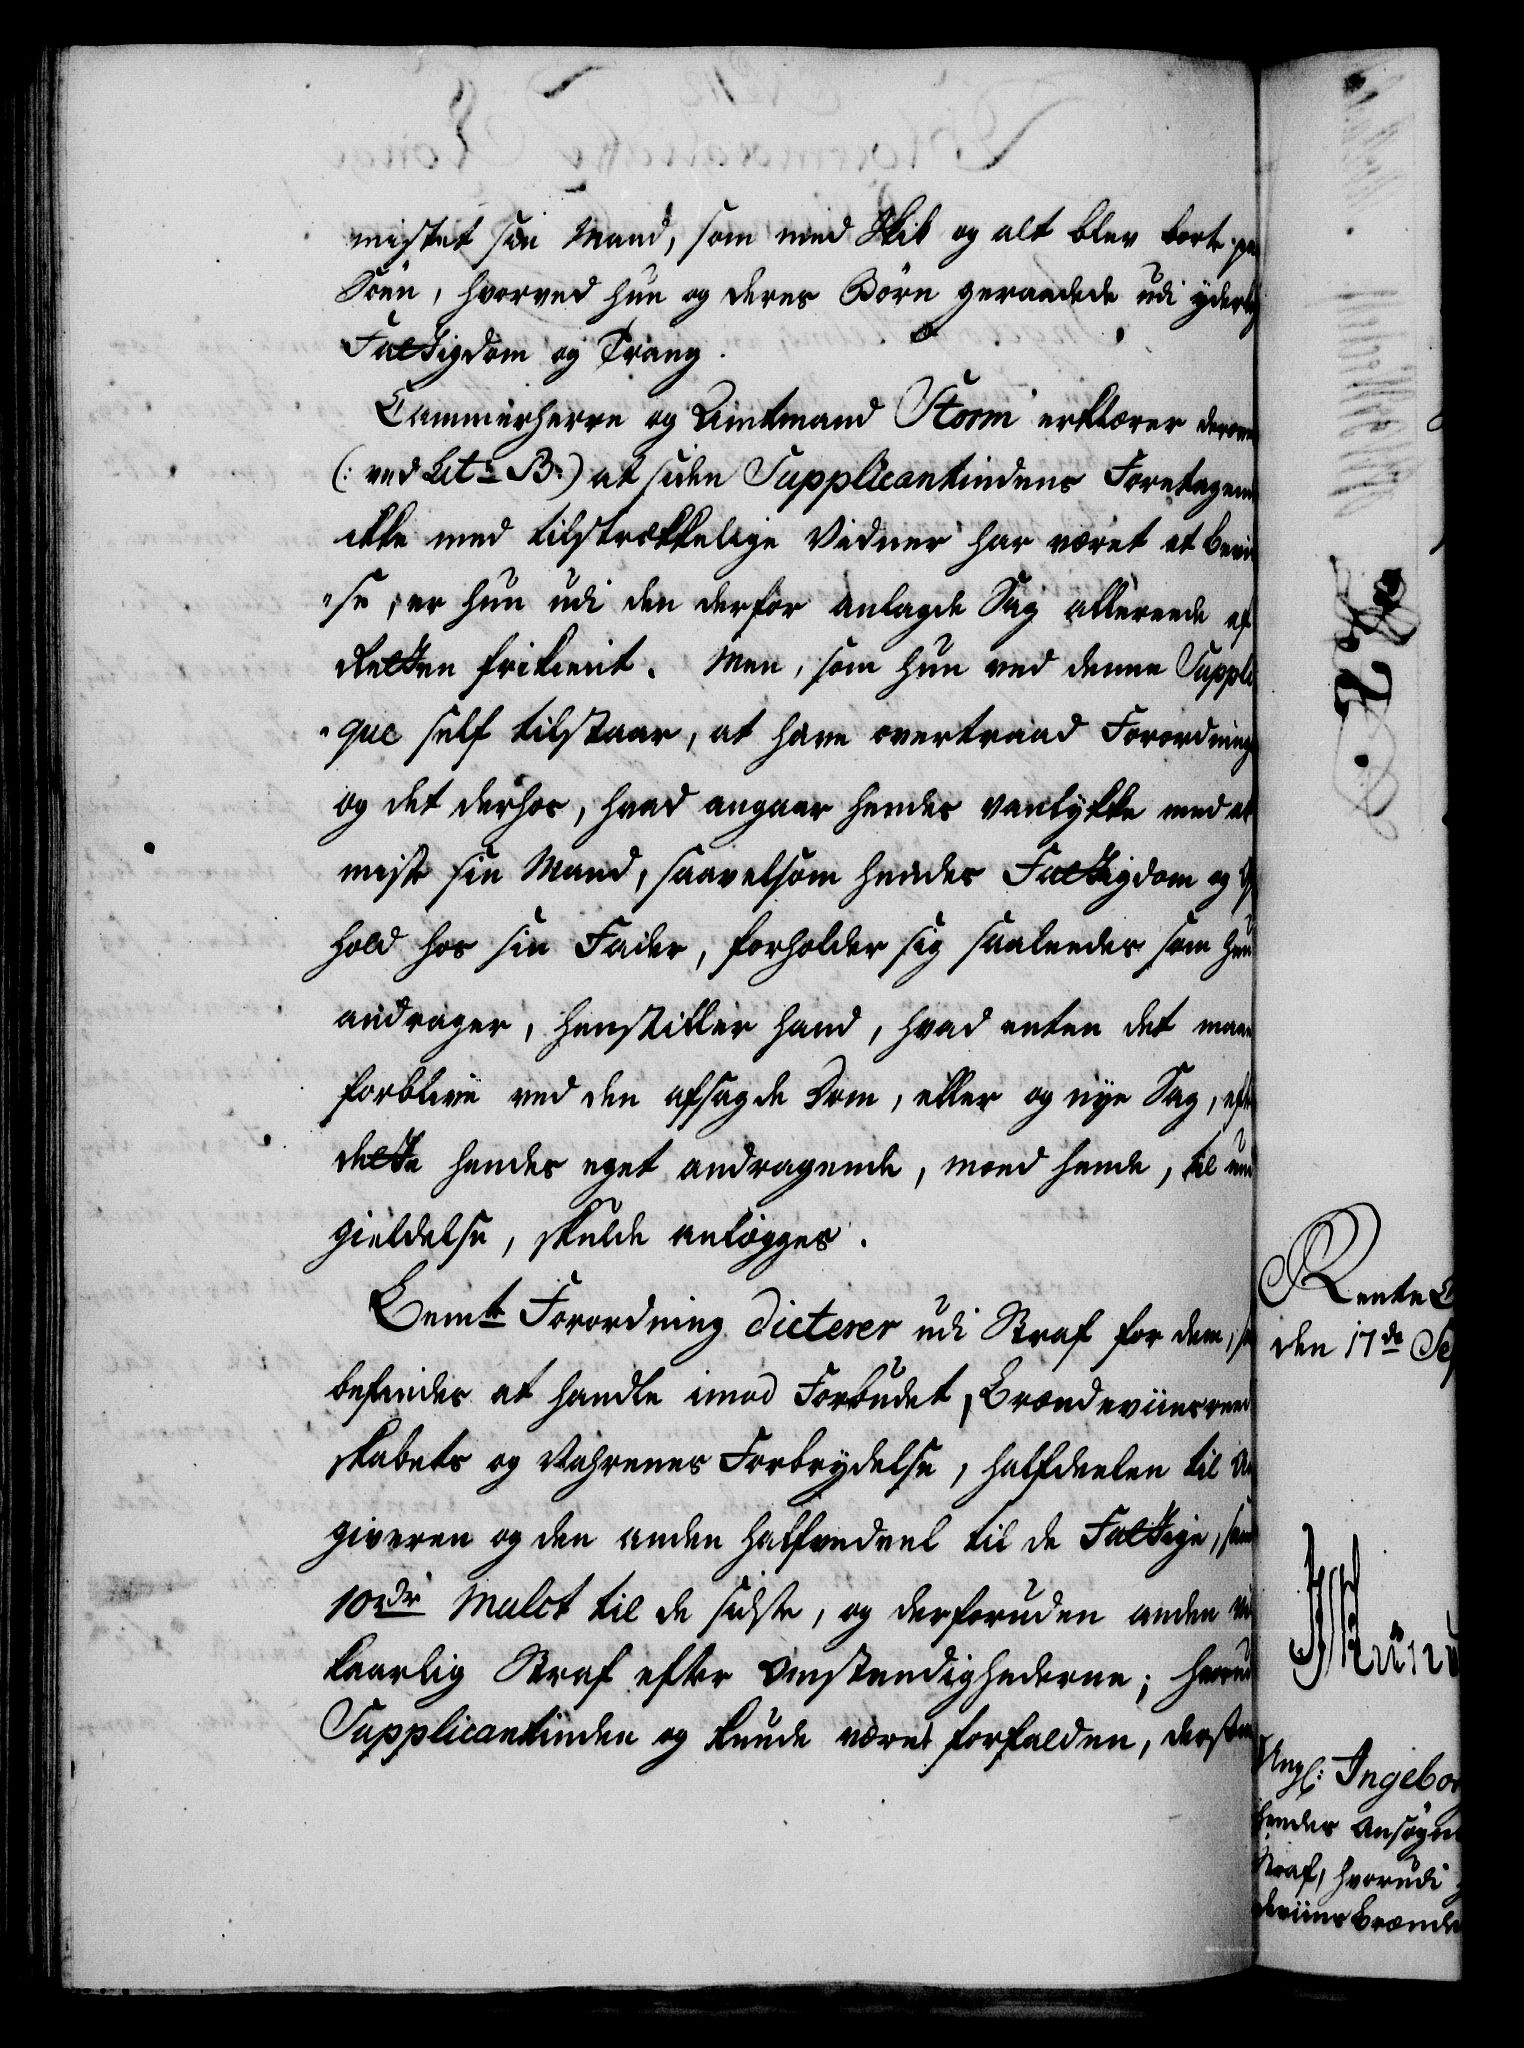 mistet sin Mand, som med Skib og alt blev borte paa
Söen, hvorved hun og deres Börn geraadede udi yderlig
Fattigdom og Trang.
Cammerherre og Amtmand Storm erklærer derover
(: ved Litr. B:) at siden Supplicantindens Foretagende
ikke med tilstrækkelige Vidner har været at bevi-
"se, er hun udi den derfor anlagde Sag allereede af
Retten frikient. Men, som hun ved denne Suppli
"que self tilstaar, at have overtraad Forordning
og det derhos, hvad angaar hendes vanlykke med at
miste sin Mand, saavelsom hendes Fattigdom og Op
hold hos sin Fader, forholder sig saaleedes som hun
andrager, henstiller hand, hvad enten det maae
forblive ved den afsagde Dom, eller og nye Sag, efter
dette hendes eget andragende, mod hende, til und
gieldelse, skulde anlægges.
Bemte Forordning dicterer udi Straf for dem, som
befindes at handle imod Forbudet, Brændeviinsreed
skabets og Vahrenes Forbrydelse, halfdeelen til An
giveren og den anden halfvedeel til de Fattige, samt
10 rdr Mulct til de sidste, og derforuden anden vil
kaarlig Straf efter Omstændighederne; hvorudi
Supplicantinden og kunde været forfalden, dersom
Rente C
den 17de Sep
Angl: Ingebor
hendes Ansögn
Straf, hvorudi
deviins Brænde